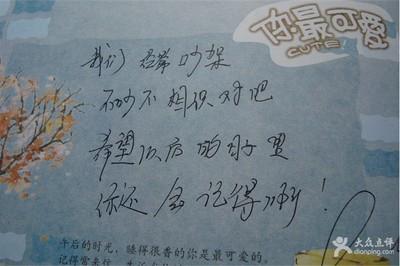 你最可爱
CUTE!
我们 经常 吵架
不吵不相识对吧
希望以后的日子里
你还会记得啊!
午后的时光,睡得很香的你是最可爱的。
大众点评
dianping.com